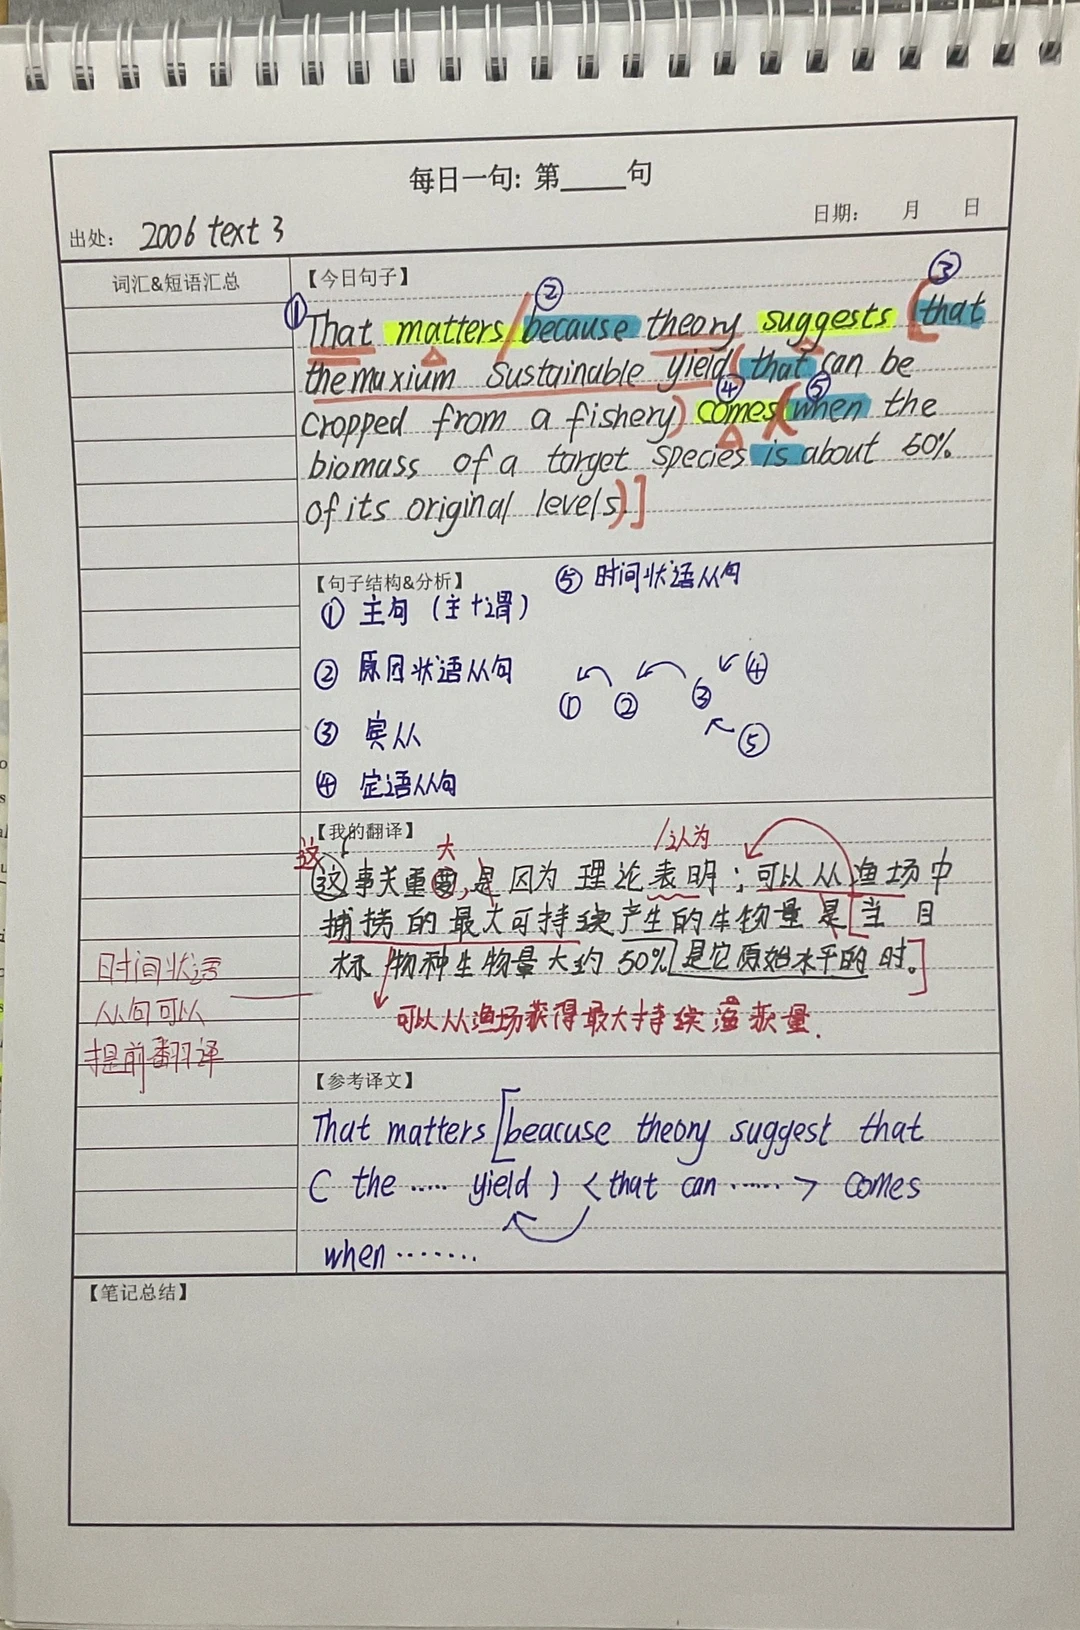 每日一句: 第_____句
出处: 2006 text 3
日期: 月 日
词汇&短语汇总
【今日句子】
① ② ③
That matters / because theory suggests [that
the maxium sustainable yield (that can be
④ ⑤
cropped from a fishery) comes (when the
biomass of a target species is about 50%
of its original levels)]
【句子结构&分析】
⑤ 时间状语从句
① 主句 (主+谓)
② 原因状语从句
③ 宾从
④ 定语从句
① ② ③ ④
⑤
【我的翻译】
这 大 /认为
这事关重要,是因为理论表明;可以从渔场中
捕捞的最大可持续产生的生物量是[当目
标物种生物量大约50%是它原始水平的时。]
可以从渔场获得最大持续渔获量.
时间状语
从句可以
提前翻译
【参考译文】
That matters [beacuse theory suggest that
( the ····· yield ) < that can ······ > comes
when ·······
【笔记总结】